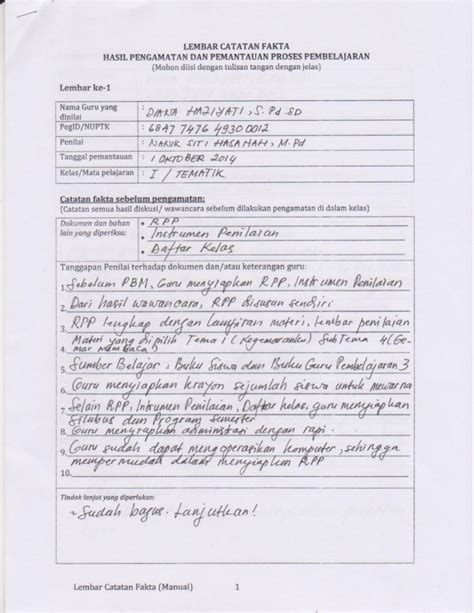 LEMBAR CATATAN FAKTA
HASIL PENGAMATAN DAN PEMANTAUAN PROSES PEMBELAJARAN
(Mohon diisi dengan tulisan tangan dengan jelas)
Lembar ke-1
Nama Guru yang dinilai : DIANA HAZIYATI, S.Pd.SD
PegID/NUPTK : 6847 7476 4930 0012
Penilai : NANIK SITI HASANAH, M.Pd
Tanggal pemantauan : 1 OKTOBER 2014
Kelas/Mata pelajaran : I / TEMATIK
Catatan fakta sebelum pengamatan:
(Catatan semua hasil diskusi/ wawancara sebelum dilakukan pengamatan di dalam kelas)
Dokumen dan bahan lain yang diperiksa:
• RPP
• Instrumen Penilaian
• Daftar Kelas
Tanggapan Penilai terhadap dokumen dan/atau keterangan guru:
1. Sebelum PBM, Guru menyiapkan RPP, Instrumen Penilaian
2. Dari hasil wawancara, RPP disusun sendiri
3. RPP lengkap dengan lampiran materi, lembar penilaian
4. Materi yang dipilih Tema 1 (Kegemaranku) SubTema 4 (Ge-
mar Membaca)
5. Sumber Belajar : Buku Siswa dan Buku Guru Pembelajaran 3
6. Guru menyiapkan krayon sejumlah siswa untuk mewarna
7. Selain RPP, Intrumen Penilaian, Daftar kelas, guru menyiapkan
Silabus dan Program semester
8. Guru menyiapkan administrasi dengan rapi.
9. Guru sudah dapat mengoperasikan komputer, sehingga
mempermudah dalam menyiapkan RPP
10.
Tindak lanjut yang diperlukan:
- Sudah bagus. Lanjutkan!
Lembar Catatan Fakta (Manual) 1